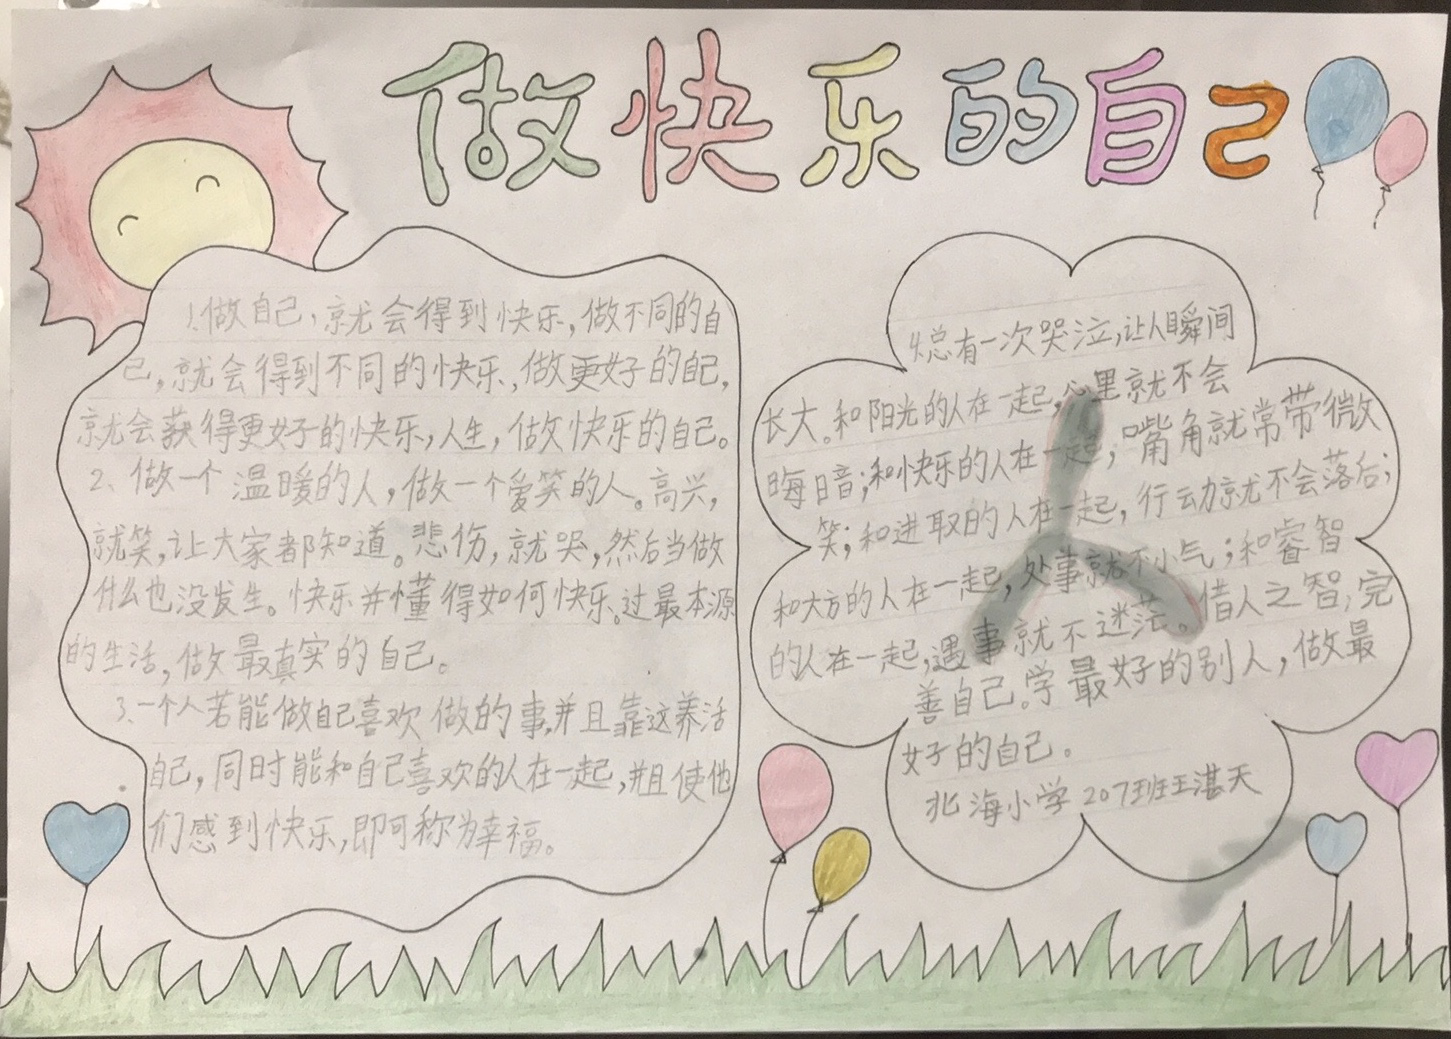 做快乐的自己
1.做自己，就会得到快乐，做不同的自
己，就会得到不同的快乐，做更好的自己，
就会获得更好的快乐，人生，做快乐的自己。
2、做一个温暖的人，做一个爱笑的人。高兴，
就笑，让大家都知道。悲伤，就哭，然后当做
什么也没发生。快乐并懂得如何快乐。过最本源
的生活，做最真实的自己。
3、一个人若能做自己喜欢做的事，并且靠这养活
自己，同时能和自己喜欢的人在一起，并且使他
们感到快乐，即可称为幸福。
4.总有一次哭泣，让人瞬间
长大。和阳光的人在一起，心里就不会
晦暗；和快乐的人在一起，嘴角就常带微
笑；和进取的人在一起，行动就不会落后；
和大方的人在一起，处事就不小气；和睿智
的人在一起，遇事就不迷茫。借人之智，完
善自己。学最好的别人，做最
好的自己。
北海小学207班王湛天